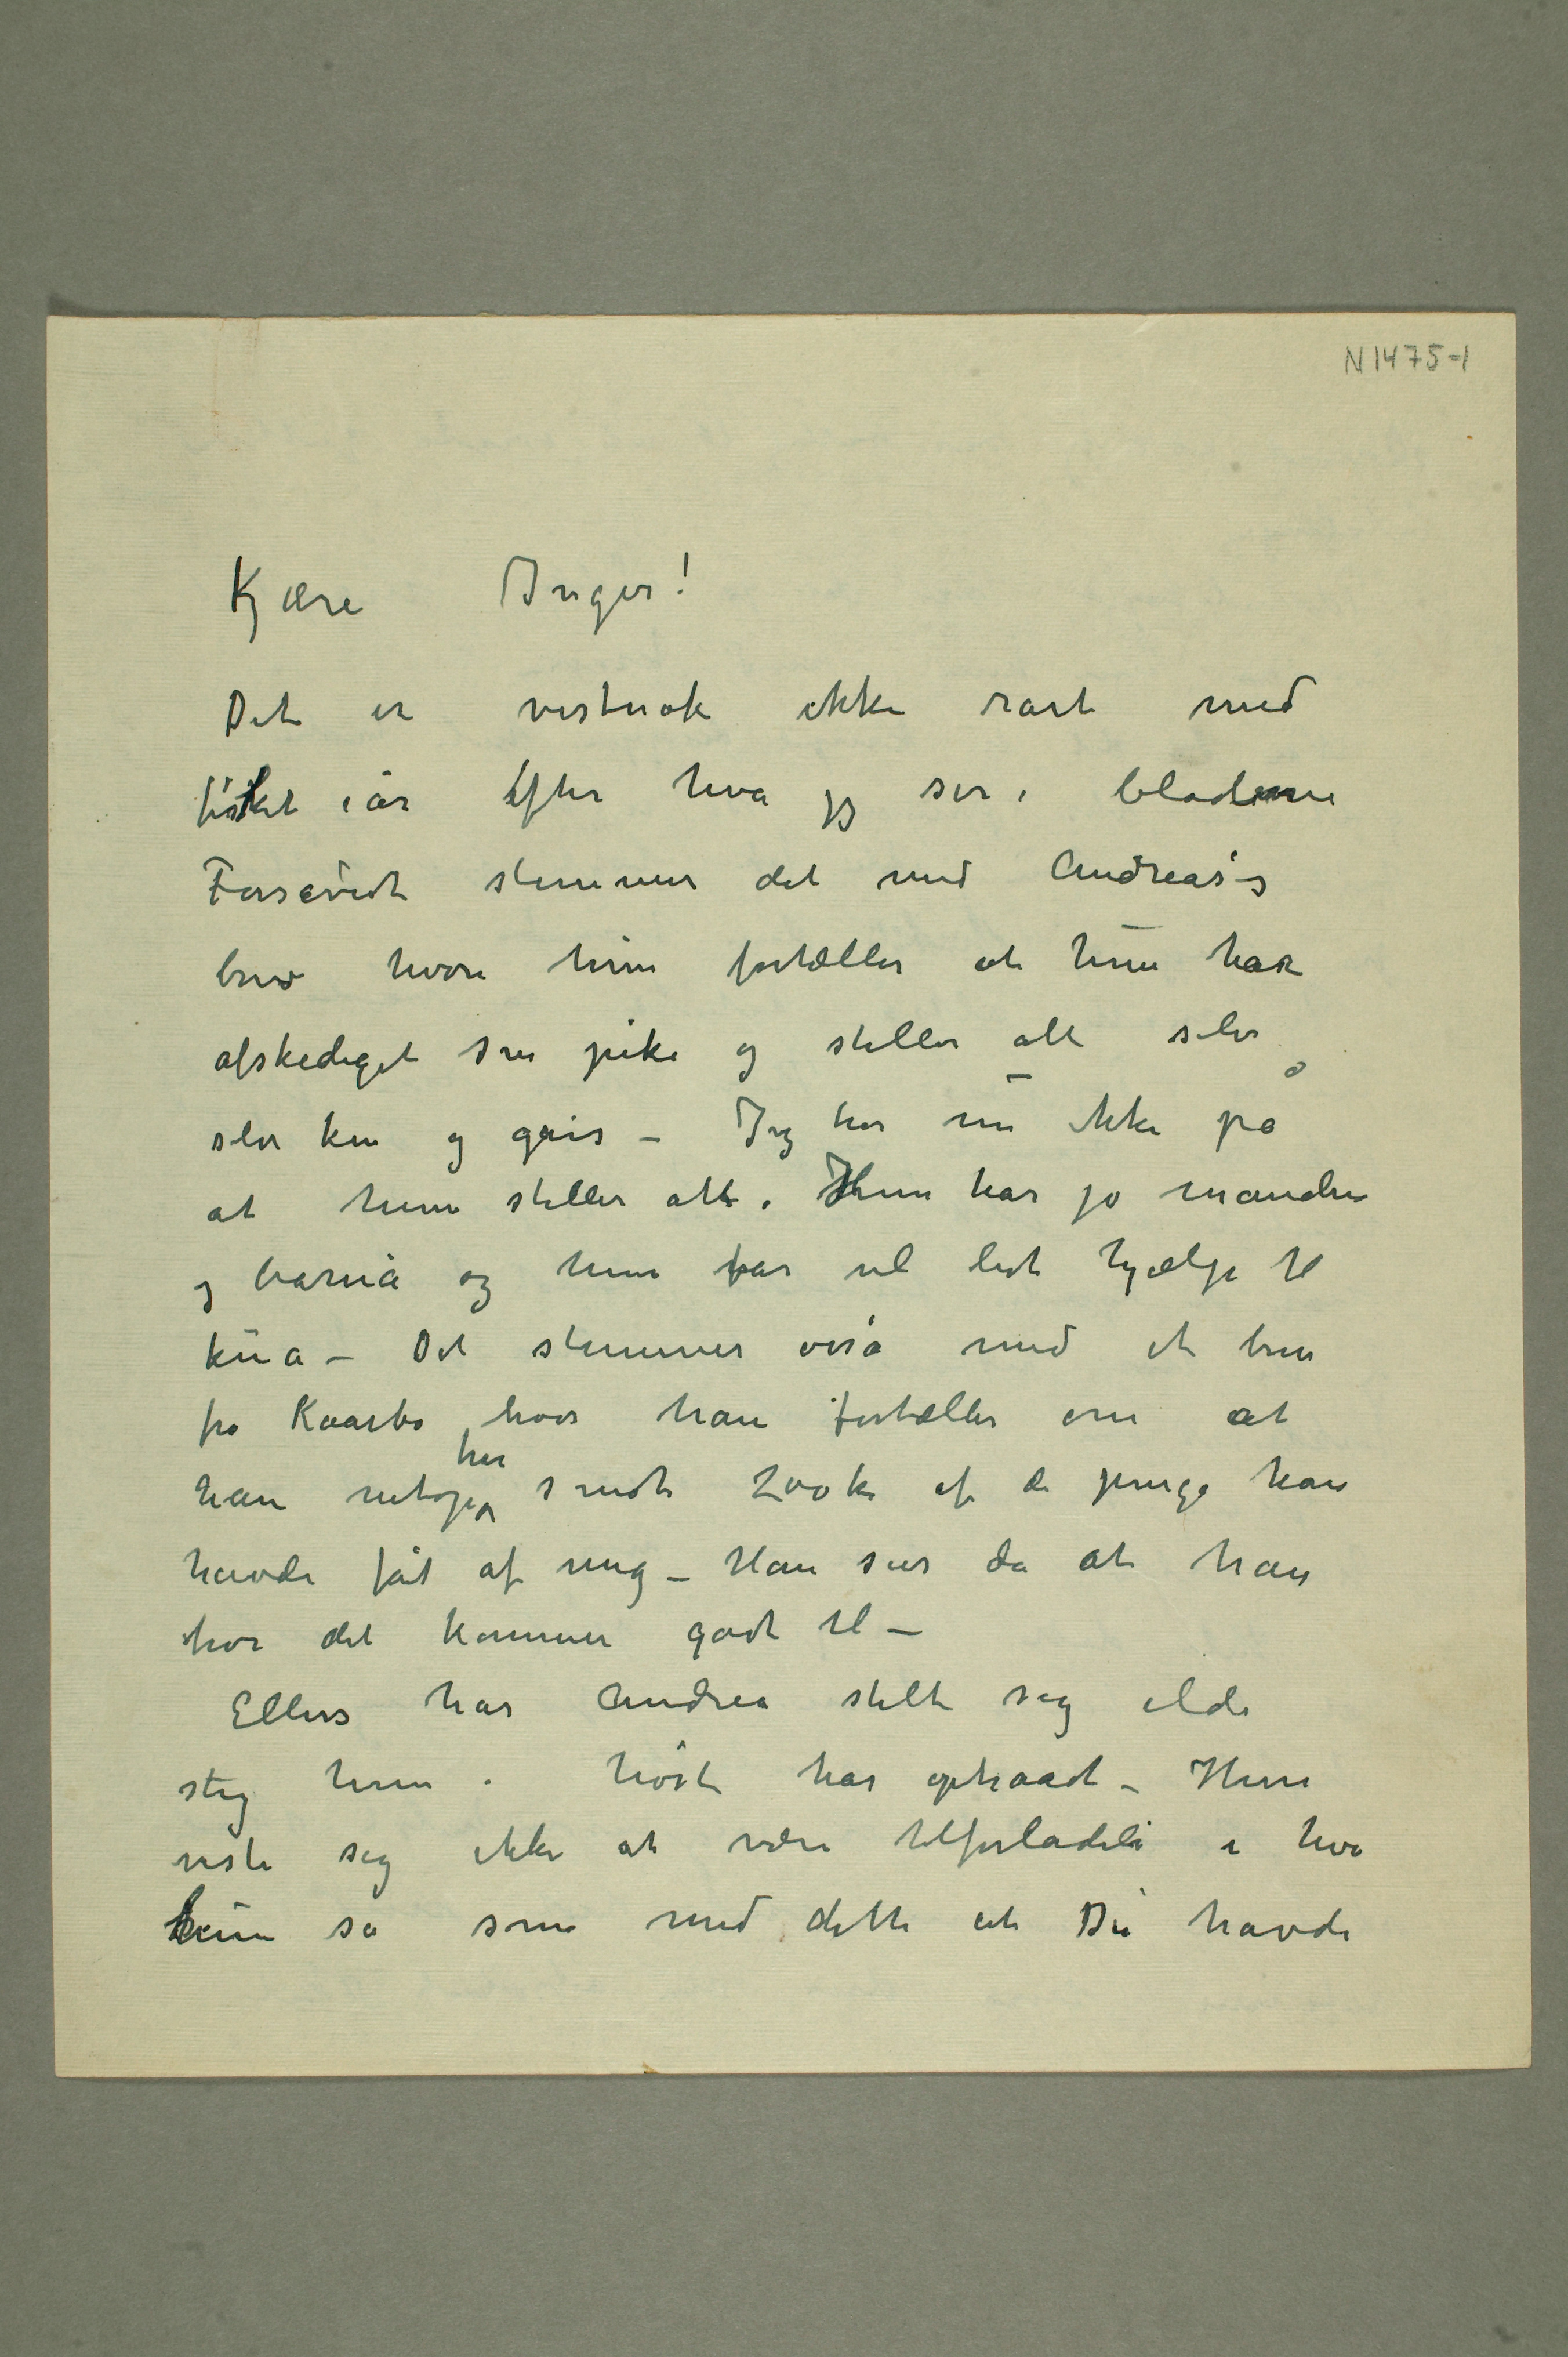 N 1475-1
Kjære Inger!
Det er vistnok ikke rart med
fisket iår Efter hva jeg ser i bladene
Forsåvidt stemmer det med Andreas's
brev hvori hun fortæller at hun har
afskediget sin pike og steller alt selv
selv ku og gris – Jeg tror nu ikke på
at hun steller alt. Hun har jo manden
og barna og hun får vel lidt hjælp til
kua – Det stemmer også med et brev
fra Kaarbø hvor han fortæller om at
han netop har sendt 200 kr af de penge han
havde fåt af mig – Han sier da at han
tror det kommer godt til –
Ellers har Andrea stelt seg ilde
slig hun i høst har optraadt – Hun
viste seg ikke at være tilforladeli i hva
hun sa som med dette at Du havde